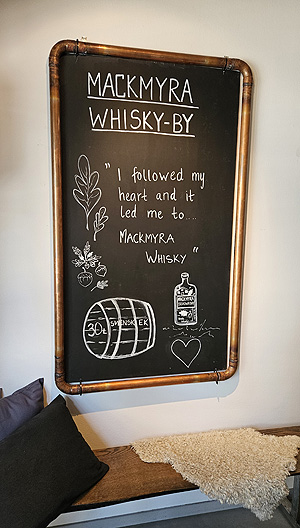 MACKMYRA
WHISKY-BY
"I followed my
heart and it
led me to....
MACKMYRA
WHISKY"
30L SVENSK EK
MACKMYRA